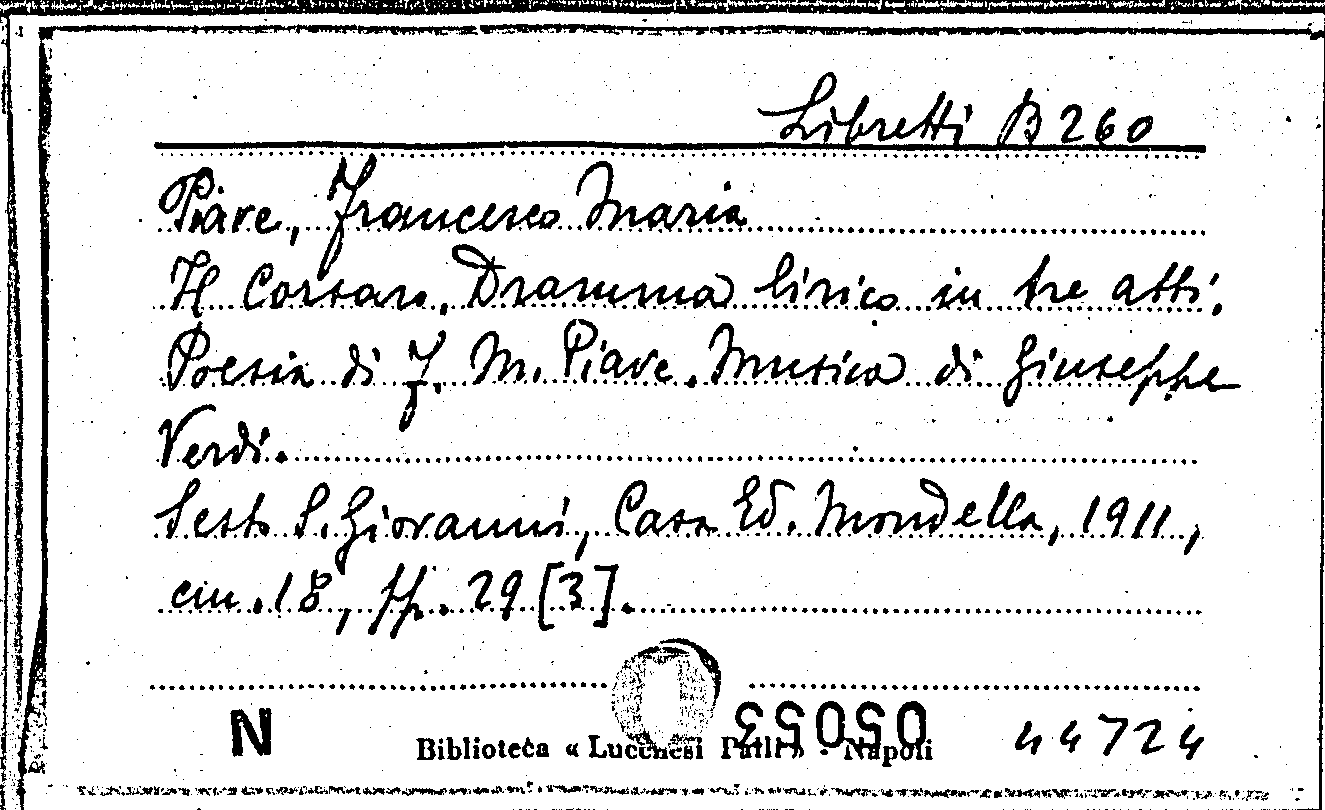 Libretti B 260
Piave, Francesco Maria
Il Corsaro. Dramma lirico in tre atti.
Poesia di F. M. Piave. Musica di Giuseppe
Verdi.
Sesto S. Giovanni, Casa Ed. Mondella, 1911,
cm. 18, pp. 29 [3].
N
Biblioteca « Lucchesi Palli » - Napoli
44724